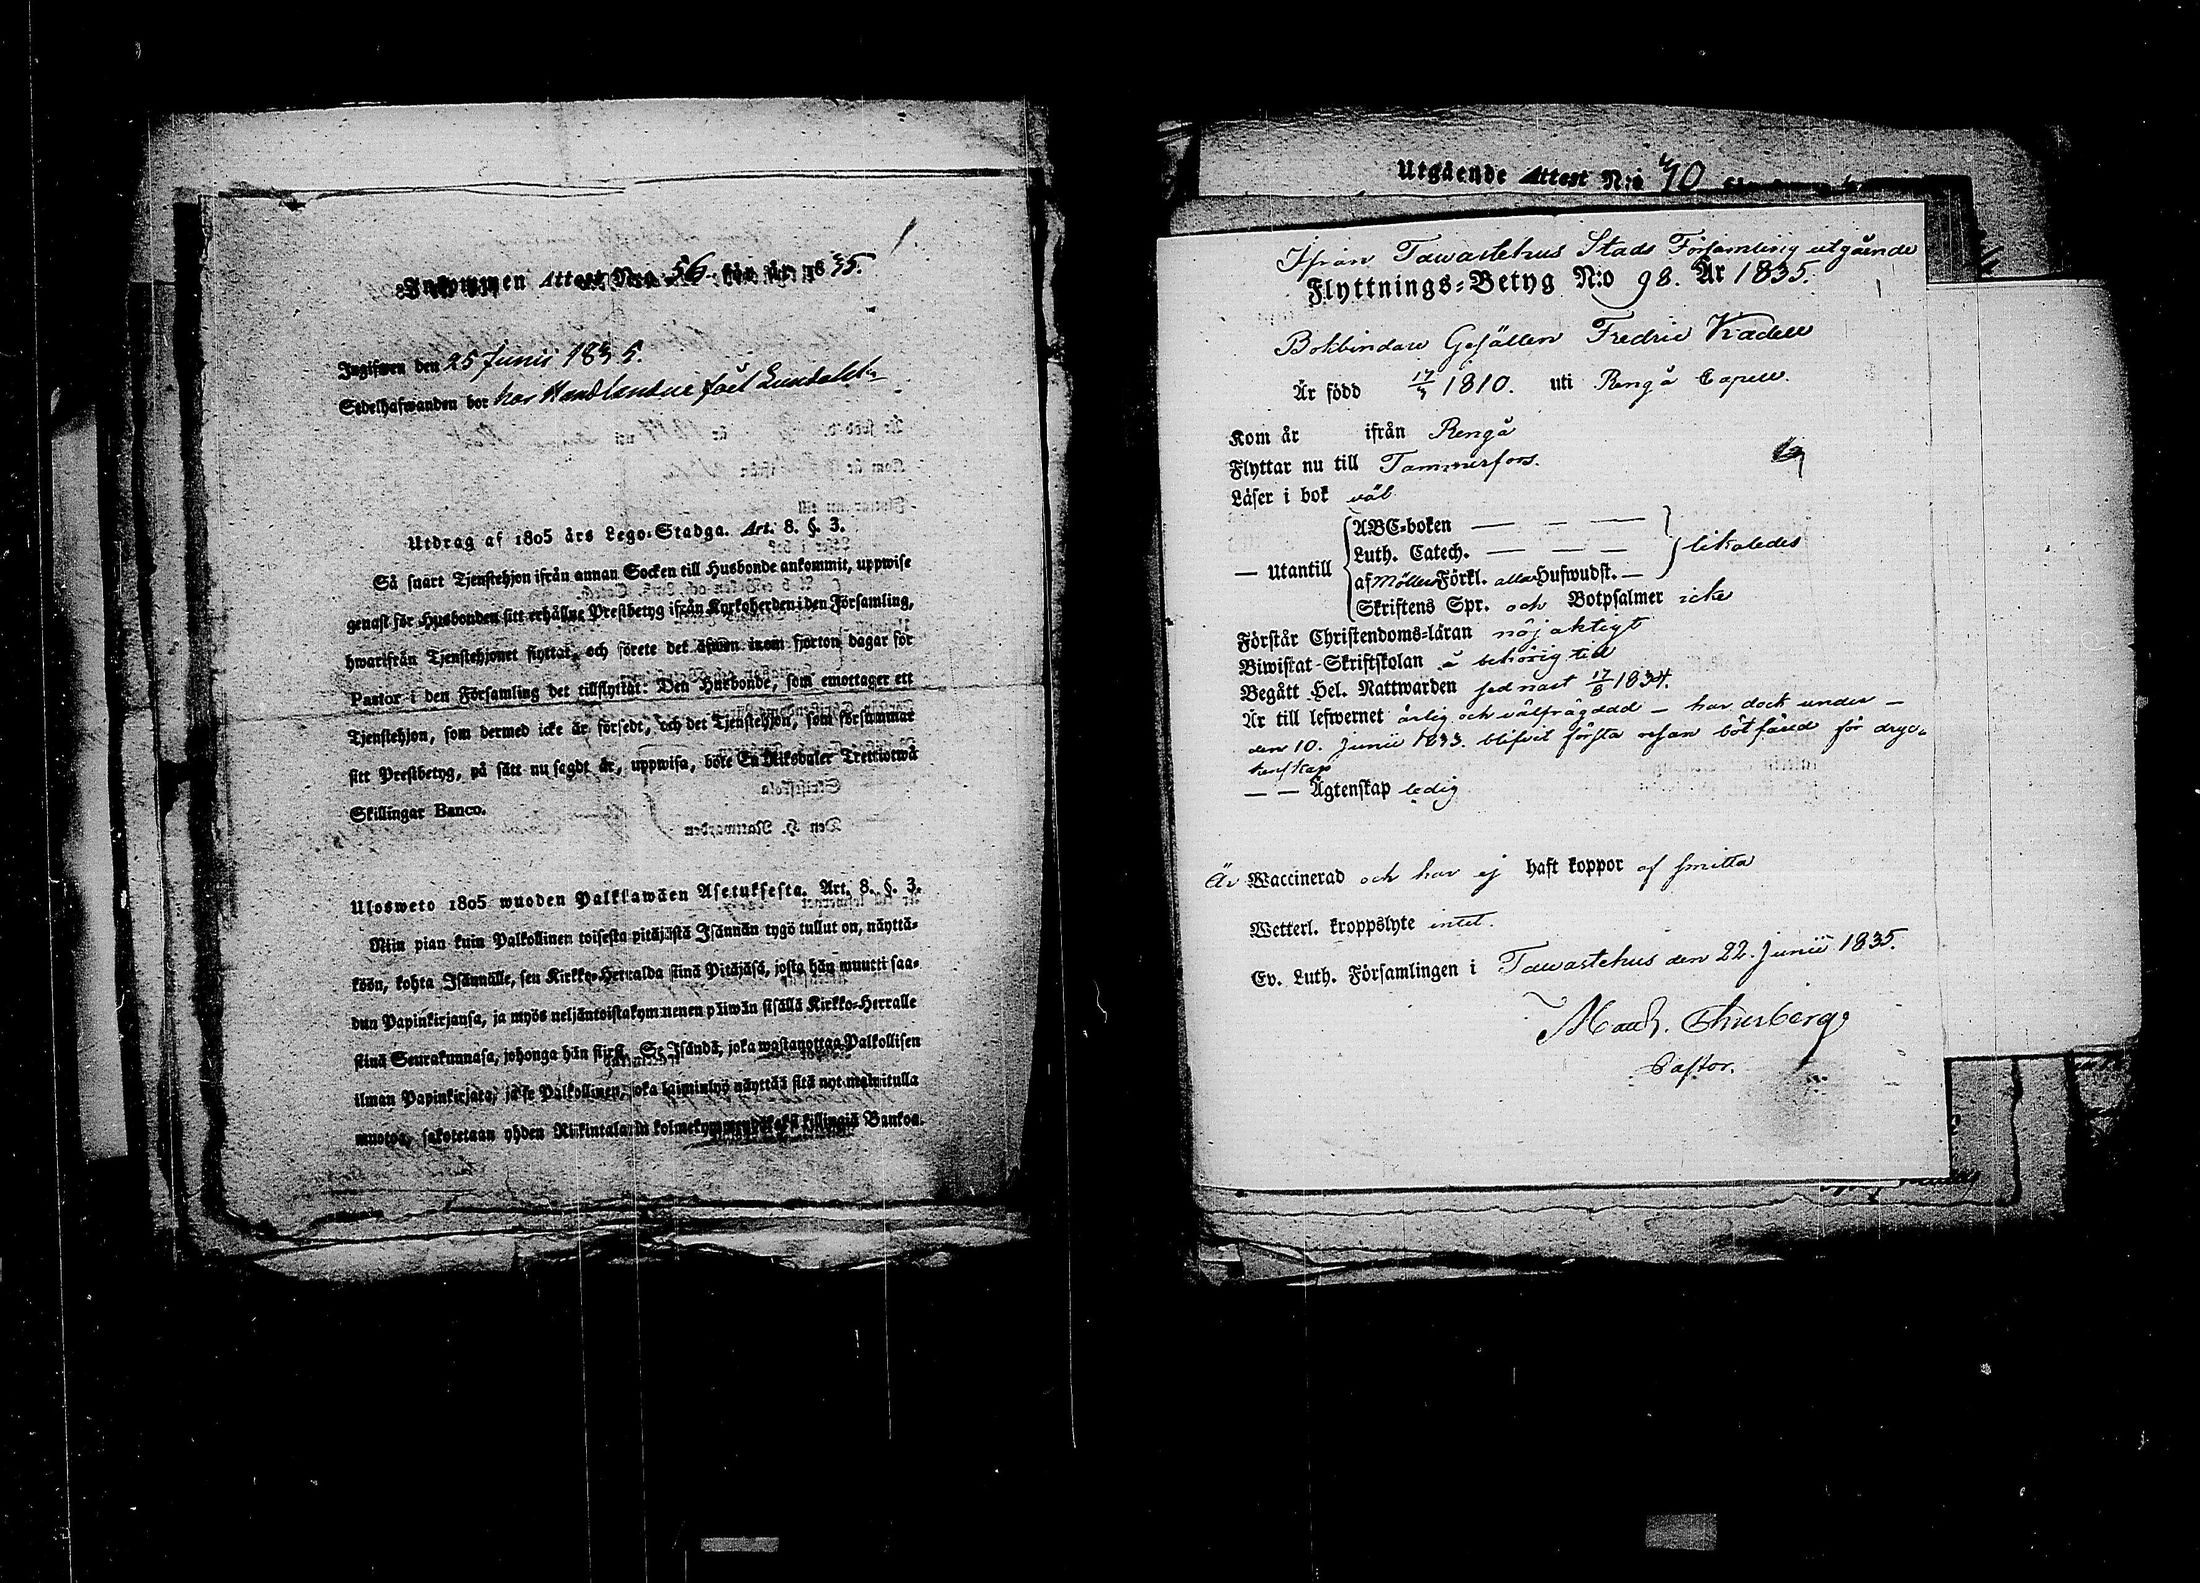 Inkommen Attest N:o 56 för år 1835.
Ingifwen den 25 Junii 1835.
Sedelhafwanden bor hos Handlanden
Utdrag af 1805 års Lego-Stadga. Art. 8. §. 3.
Så snart Tjenstehjon ifrån annan Socken till Husbonde ankommit, uppwise
genast för Husbonden sitt erhållne Prestbetyg ifrån Kyrkoherden i den Församling,
hwarifrån Tjenstehjonet flyttat, och förete det äfwen inom fjorton dagar för
Pastor i den Församling det tillflyttat: Den Husbonde, som emottager ett
Tjenstehjon, som dermed icke är försedt, och det Tjenstehjon, som försummar
sitt Prestbetyg, på sätt nu sagdt är, uppwisa, böte En Riksdaler Trettiotwå
Skillingar Banco.
Ulosweto 1805 wuoden Palkkawäen Asetuksesta. Art. 8. §. 3.
Niin pian kuin Palkollinen toisesta pitäjästä Isännän tygö tullut on, näyttä-
köön, kohta Isännälle, sen Kirkko-Herralda siinä Pitäjäsä, josta hän muutti saa-
dun Papinkirjansa, ja myös neljäntoistakymmenen päiwän sisällä Kirkko-Herralle
siinä Seurakunnasa, johonga hän siirsi. Se Isändä, joka wastanottaa Palkollisen
ilman Papinkirjata, ja se Palkollinen, joka laiminlyö näyttää sitä nyt mainitulla
muotoa, sakotetaan yhden Riikintalarin kolmekymmendäkaksi killingiä Bankoa.
Utgående Attest N:o 40
Ifrån Tawastehus Stads Församling utgående
Flyttnings-Betyg N:o 98. År 1835.
Bokbindare Gesällen Fredric Kadell
Är född 17/3 1810. uti Rengå Capell.
Kom år ifrån Rengå
Flyttar nu till Tammerfors.
Läser i bok väl
— Utantill ABC-boken — — —
Luth. Catech. — — — likaledes
af Möller Förkl. allar Hufwudst. —
Skriftens Spr. och Botpsalmer icke
Förstår Christendoms-läran nöjaktigt
Biwistat Skriftskolan å behörig tid
Begått Hel. Nattwarden sednast 17/8 1834.
Är till lefwernet ärlig och välfrägdad — har dock under —
den 10. Junii 1833. blifvit första resan bötfäld för dryc-
kenskap
— — Ägtenskap ledig
Är Waccinerad och har ej haft koppor af smitta
Wetterl. kroppslyte intet.
Ev. Luth. Församlingen i Tawastehus den 22. Junii 1835.
Math. Thusberg
Pastor.